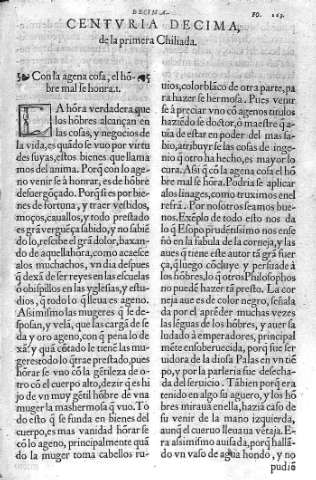 DECIMA.
FO. 123.
CENTVRIA DECIMA,
de la primera Chiliada.
Con la agena cosa, el hõ-
bre mal se honra. 1.
LA hõra verdadera que
los hõbres alcançan en
las cosas, y negocios de
la vida, es quãdo se vuo por virtu
des suyas, estos bienes que llama
mos del anima. Porq̃ con lo age-
no venir se à honrar, es de hõbre
desuergoçado. Porq̃ si es por bie-
nes de fortuna, y traer vestidos,
moços, cauallos, y todo prestado
es grã verguẽça sabido, y no sabiẽ
do lo, rescibe el grã dolor, baxan-
do de aquella hõra, como acaesce
alos muchachos, vn dia despues
q̃ dexã de ser reyes en las escuelas
ò obispillos en las yglesias, y estu-
dios, q̃ todo lo q̃ lleua es ageno.
Assimismo las mugeres q̃ se des-
posan, y vela, que las cargã de se
da y oro ageno, con q̃ pena lo de
xã: y quã cõtado le tiene las mu-
geres todo lo q̃ trae prestado, pues
hõrar se vno cõ la gẽtileza de o-
tro cõ el cuerpo alto, dezir q̃ es hi
jo de vn muy gẽtil hõbre de vna
muger la mas hermosa q̃ vuo. To
do esto q̃ se funda en bienes del
cuerpo, es mas vanidad hõrar se
cõ lo ageno, principalmente quã
do la muger toma cabellos ru-
uios, color blãco de otra parte, pa
ra hazer se hermosa. Pues venir
se à preciar vno cõ agenos titulos
haziẽdo se doctor, ò maestre q̃ a-
uia de estar en poder del mas sa-
bio, atribuyr se las cosas de inge-
nio q̃ otro ha hecho, es mayor lo
cura. Assi q̃ cõ la agena cosa el hõ
bre mal se hõra. Podria se aplicar
a los linages, como truximos en el
refrã. Por nosotros seamos bue-
nos. Exẽplo de todo esto nos da
lo q̃ Esopo prudẽtissimo nos ense
ñò en la fabula de la corneja, y las
aues q̃ tiene este autor tã grã fuer
ça, q̃ luego cõcluye y persuade à
los hõbres, lo q̃ otros Philosophos
no puedẽ hazer tã presto. La cor
neja aue es de color negro, señala
da por el aprẽder muchas vezes
las lẽguas de los hõbres, y auer sa
ludado à emperadores, principal
mẽte ensoberuecida, porq̃ fue ser
uidora de la diosa Palas en vn tiẽ
po, y por la parleria fue desecha-
da del seruicio. Tãbien porq̃ era
tenido en algo su aguero, y los hõ
bres miraua enella, hazia caso de
su venir de la mano izquierda,
aunq̃ el cueruo lleuaua vẽtaja. E-
ra assimismo auisada, porq̃ hallã-
do vn vaso de agua hondo, y no
pudiẽ